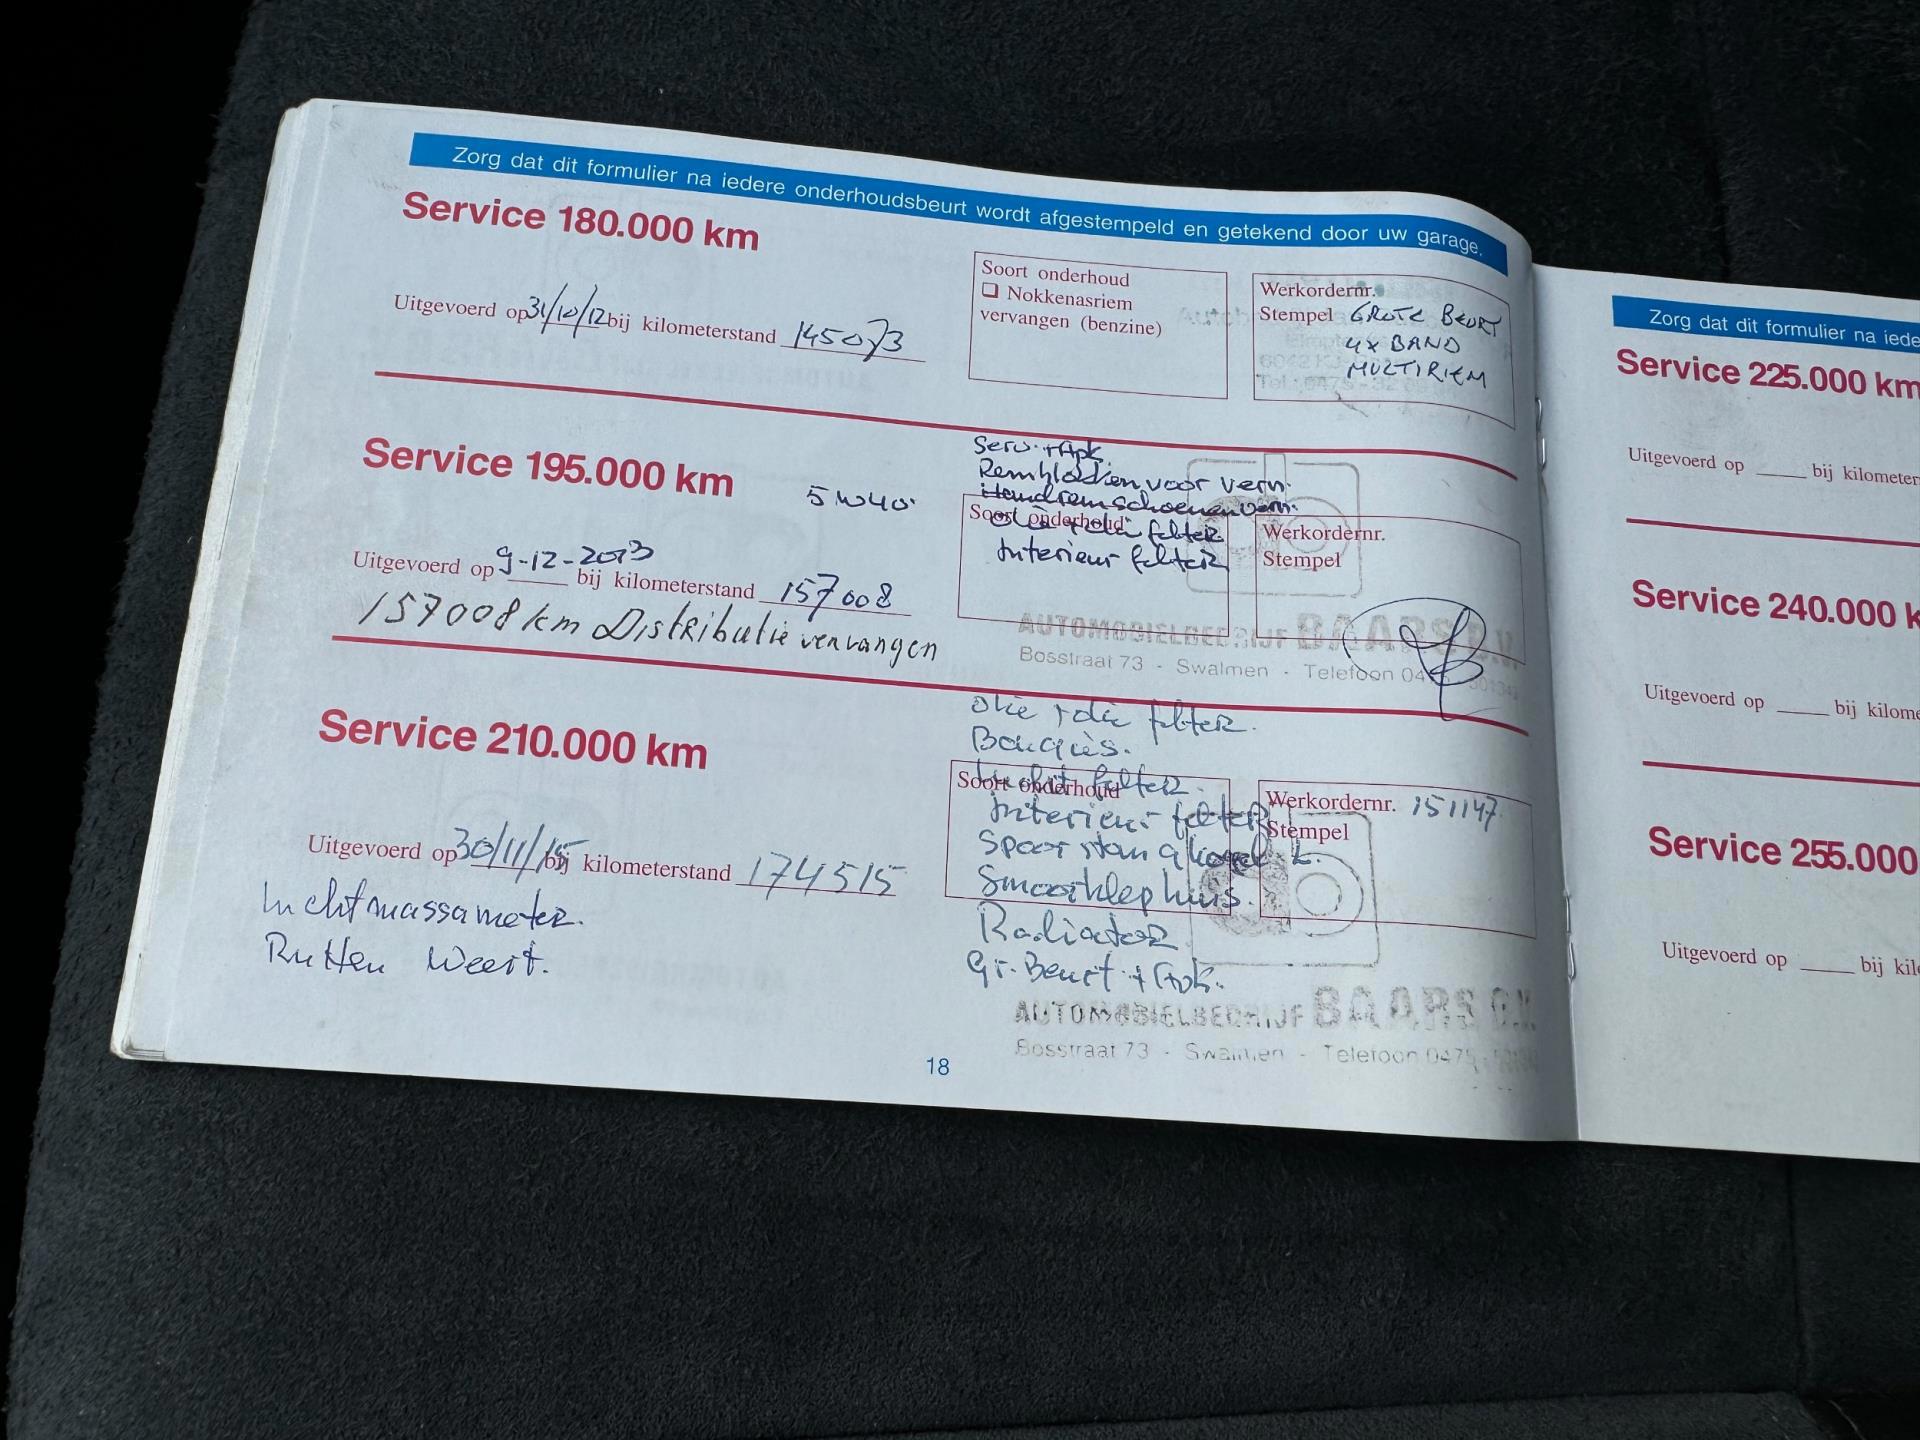 Zorg dat dit formulier na iedere onderhoudsbeurt wordt afgestempeld en getekend door uw garage.
Service 180.000 km
Uitgevoerd op 31/10/12 bij kilometerstand 145073
Soort onderhoud
❑ Nokkenasriem
vervangen (benzine)
Werkordernr.
Stempel GROTE BEURT
4x BAND
MULTIRIEM
Service 195.000 km
5w40.
Uitgevoerd op 9-12-2013 bij kilometerstand 157008
157008 km Distributie vervangen
Serv. + Apk.
Remblokken voor vern.
Handremschoenen vern.
Soort onderhoud
olie + olie filter
Interieur filter
Werkordernr.
Stempel
AUTOMOBIELBEDRIJF BAARS B.V.
Bosstraat 73 - Swalmen - Telefoon 0475 - 501342
Service 210.000 km
Uitgevoerd op 30/11/15 bij kilometerstand 174515
Luchtmassameter.
Rutten Weert.
olie + olie filter.
Bougies.
Lucht filter.
Soort onderhoud
Interieur filter
Spoorstangkogel L.
Smoorklephuis.
Radiator
Gr. Beurt + Apk.
Werkordernr. 151147
Stempel
AUTOMOBIELBEDRIJF BAARS B.V.
Bosstraat 73 - Swalmen - Telefoon 0475
18
Zorg dat dit formulier na iede
Service 225.000 km
Uitgevoerd op ____ bij kilometer
Service 240.000 k
Uitgevoerd op ____ bij kilome
Service 255.000
Uitgevoerd op ____ bij kil